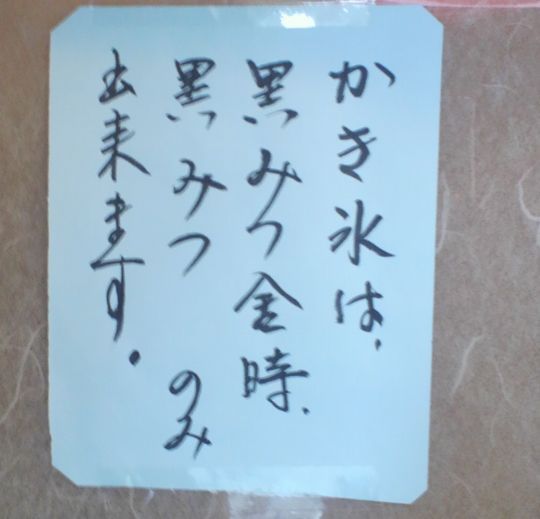 かき氷は、
黒みつ金時、
黒みつ のみ
出来ます。